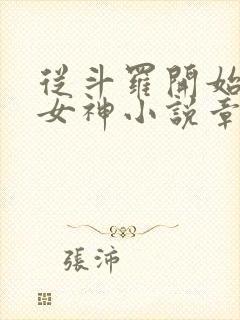 從斗羅開始
女神小說章
張沛